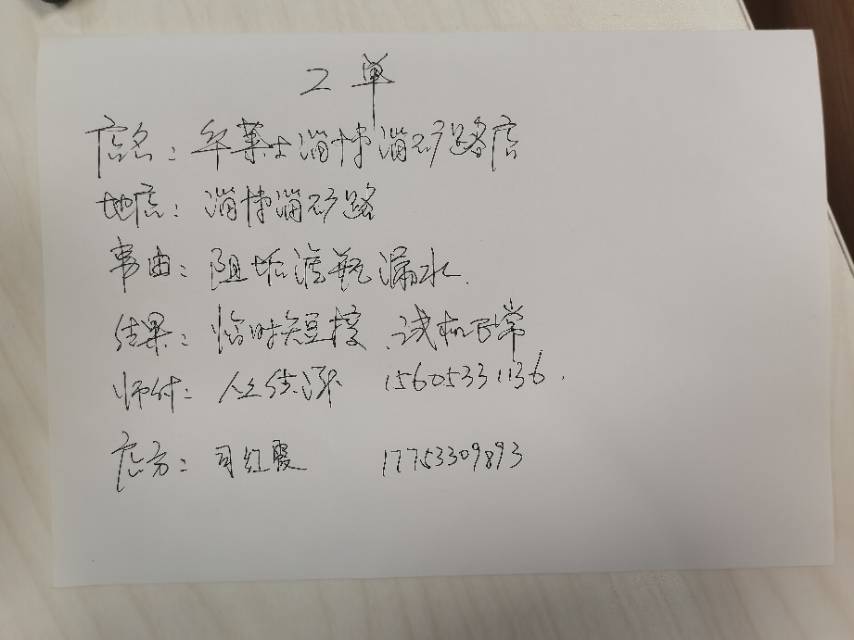 工单
店名：华莱士淄博淄矿路店
地店：淄博淄矿路
事由：阻垢滤瓶漏水.
结果：临时短接.试机正常
师付： 15605331136.
店方：司红霞 17753309893